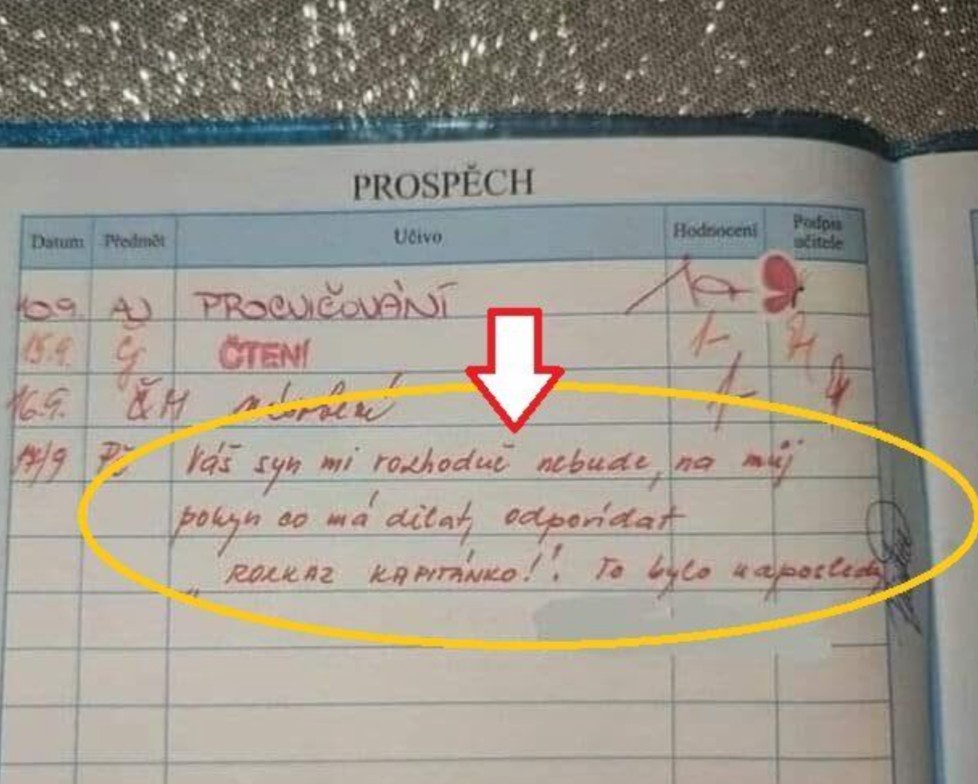 PROSPĚCH
Datum Předmět Učivo Hodnocení Podpis učitele
10.9. AJ PROCVIČOVÁNÍ 1a
15.9. Čj ČTENÍ 1-
16.9. ČM 1-
17/9 Př Váš syn mi rozhodně nebude, na můj
pokyn co má dělat, odpovídat
„ROZKAZ KAPITÁNKO!". To bylo naposledy